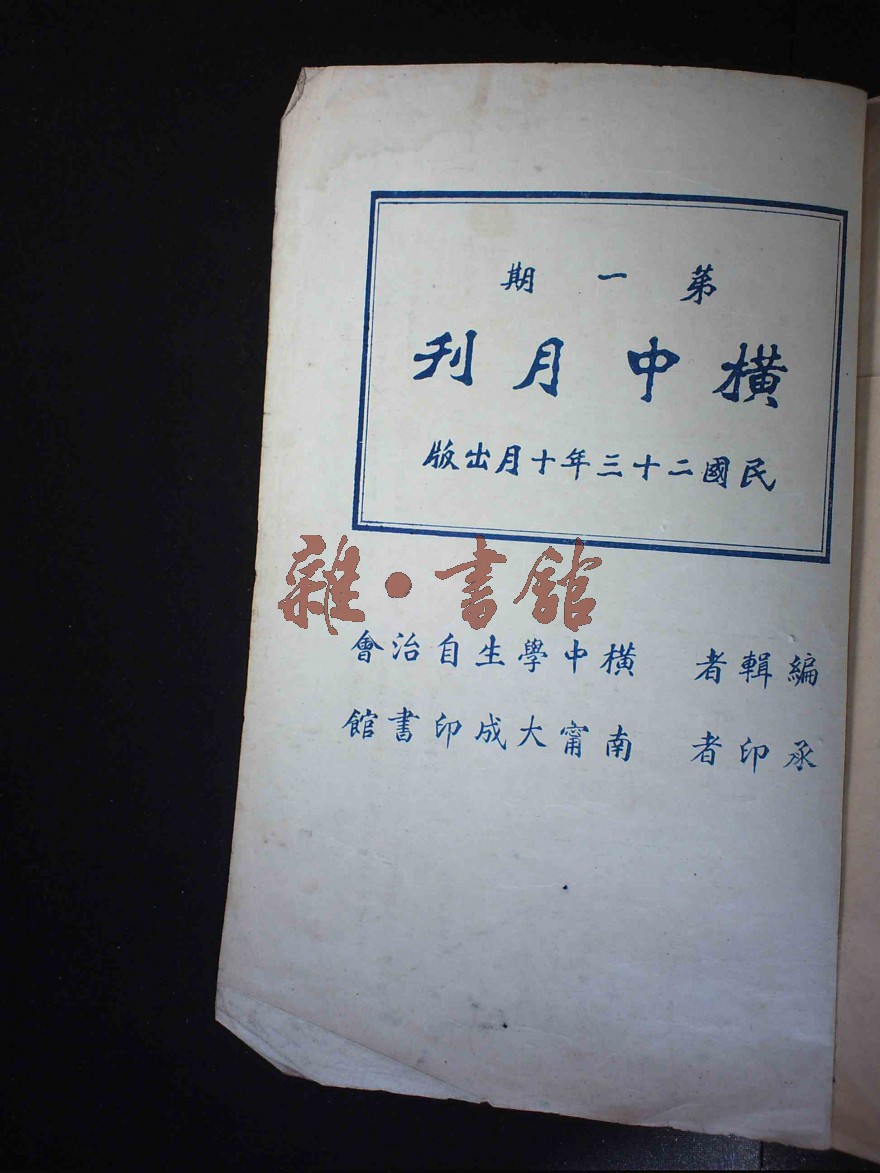 第一期
橫中月刊
民國二十三年十月出版
雜·書館
編輯者 橫中學生自治會
承印者 南甯大成印書館